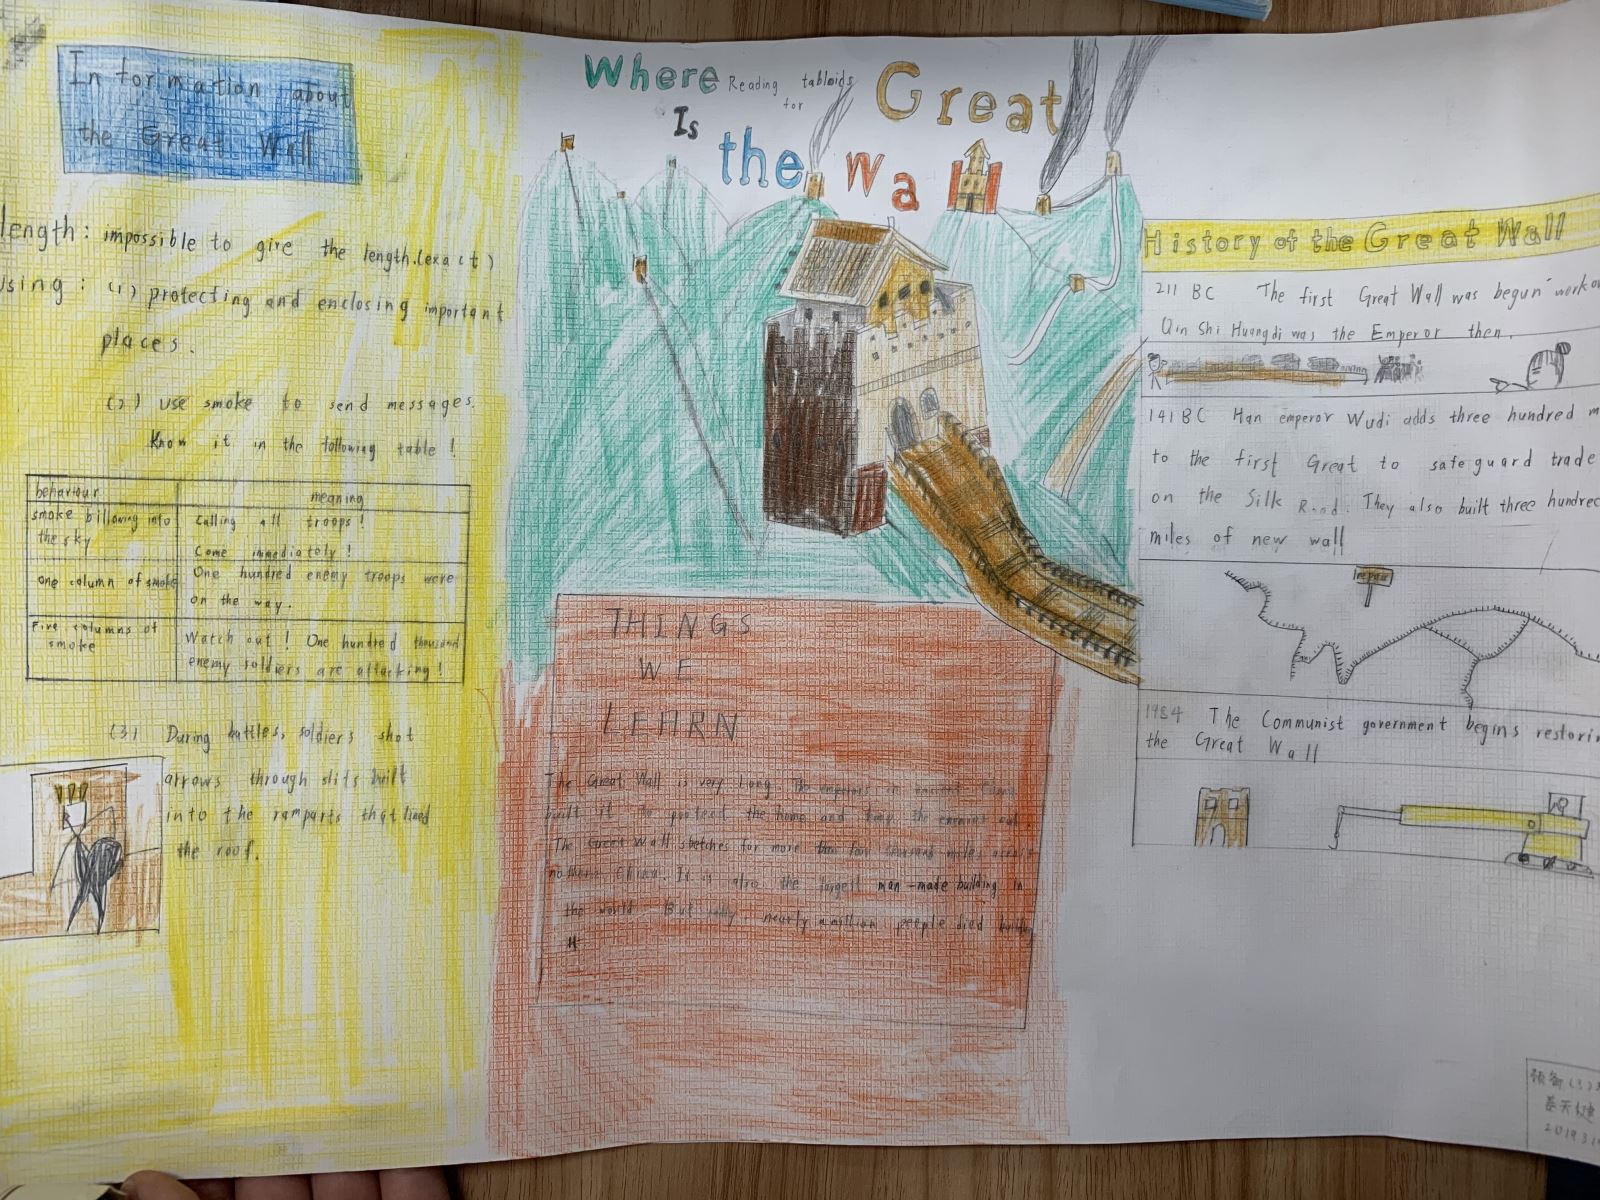 Information about
the Great Wall
length: impossible to give the length.(exact)
using: (1) protecting and enclosing important
places.
(2) use smoke to send messages.
Know it in the following table!
behaviour meaning
smoke billowing into the sky Calling all troops! Come immediately!
one column of smoke One hundred enemy troops were on the way.
Five columns of smoke Watch out! One hundred thousand enemy soldiers are attacking!
(3) During battles, soldiers shot
arrows through slits built
into the ramparts that lined
the roof.
Where Reading tabloids Great
for
Is the Wa
THINGS
WE
LEARN
The Great Wall is very long. The emperors in ancient
built it to protect the home and keep the enemies out.
The Great Wall sketches for more than four thousand miles across
northern China. It is also the largest man-made building in
the world. But nearly a million people died building
it
History of the Great Wall
211 BC The first Great Wall was begun
Qin Shi Huangdi was the Emperor then.
141 BC Han emperor Wudi adds three hundred
to the first Great to safeguard trade
on the Silk Road. They also built three hundred
miles of new wall
1984 The Communist government begins
the Great Wall
预备(3)
天健
2019.3.1